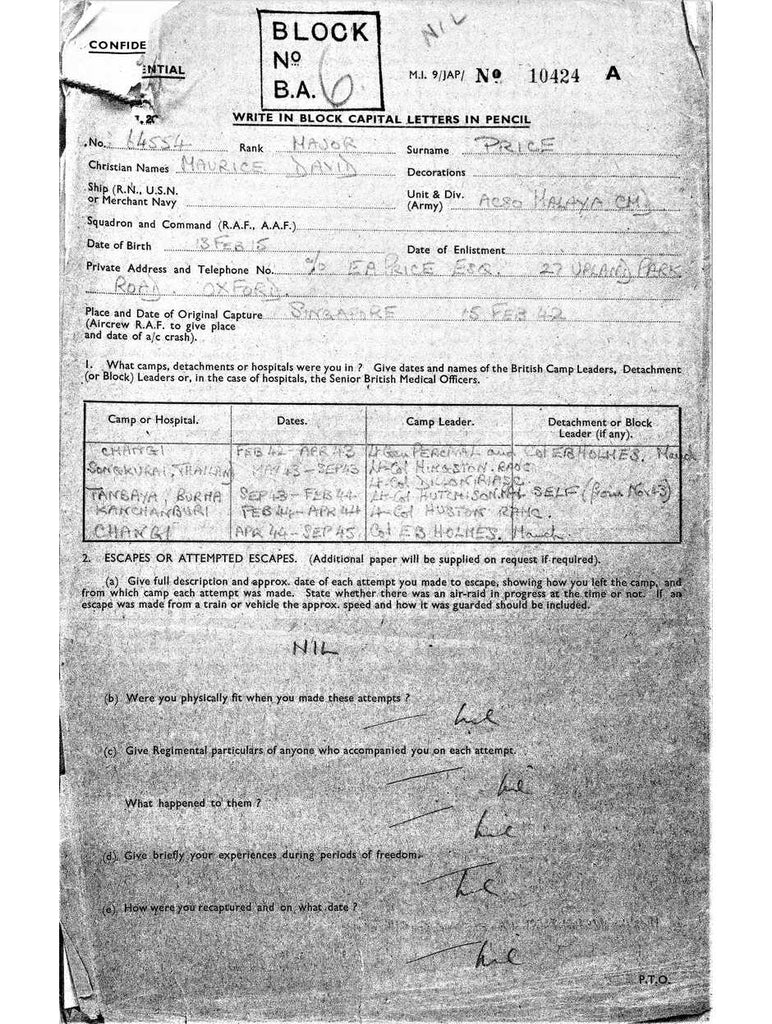 CONFIDE
NTIAL
BLOCK
No
B.A. 6
NIL
M.I. 9/JAP/ No 10424 A
WRITE IN BLOCK CAPITAL LETTERS IN PENCIL
No. 64554 Rank MAJOR Surname PRICE
Christian Names MAURICE DAVID Decorations
Ship (R.N., U.S.N. or Merchant Navy
Unit & Div. (Army) MALAYA CMD
Squadron and Command (R.A.F., A.A.F.)
Date of Birth 13 FEB 15 Date of Enlistment
Private Address and Telephone No. c/o EA PRICE ESQ. 27 UPLAND PARK
ROAD. OXFORD.
Place and Date of Original Capture SINGAPORE 15 FEB 42
(Aircrew R.A.F. to give place
and date of a/c crash).
1. What camps, detachments or hospitals were you in ? Give dates and names of the British Camp Leaders, Detachment
(or Block) Leaders or, in the case of hospitals, the Senior British Medical Officers.
Camp or Hospital. Dates. Camp Leader. Detachment or Block Leader (if any).
CHANGI FEB 42 - APR 43 Lt Gen PERCIVAL and Col EB HOLMES.
SONGKURAI, THAILAND MAY 43 - SEP 43 Lt-Col
Lt-Col DILLON RIASC
TANBAYA, BURMA SEP 43 - FEB 44 Lt-Col HUTCHISON SELF (from Nov 43)
KANCHANBURI FEB 44 - APR 44 Lt-Col HUSTON RAMC.
CHANGI APR 44 - SEP 45 Col EB HOLMES.
2. ESCAPES OR ATTEMPTED ESCAPES. (Additional paper will be supplied on request if required).
(a) Give full description and approx. date of each attempt you made to escape, showing how you left the camp, and
from which camp each attempt was made. State whether there was an air-raid in progress at the time or not. If an
escape was made from a train or vehicle the approx. speed and how it was guarded should be included.
NIL
(b) Were you physically fit when you made these attempts ?
nil
(c) Give Regimental particulars of anyone who accompanied you on each attempt.
nil
What happened to them ?
nil
(d) Give briefly your experiences during periods of freedom.
nil
(e) How were you recaptured and on what date ?
nil
P.T.O.